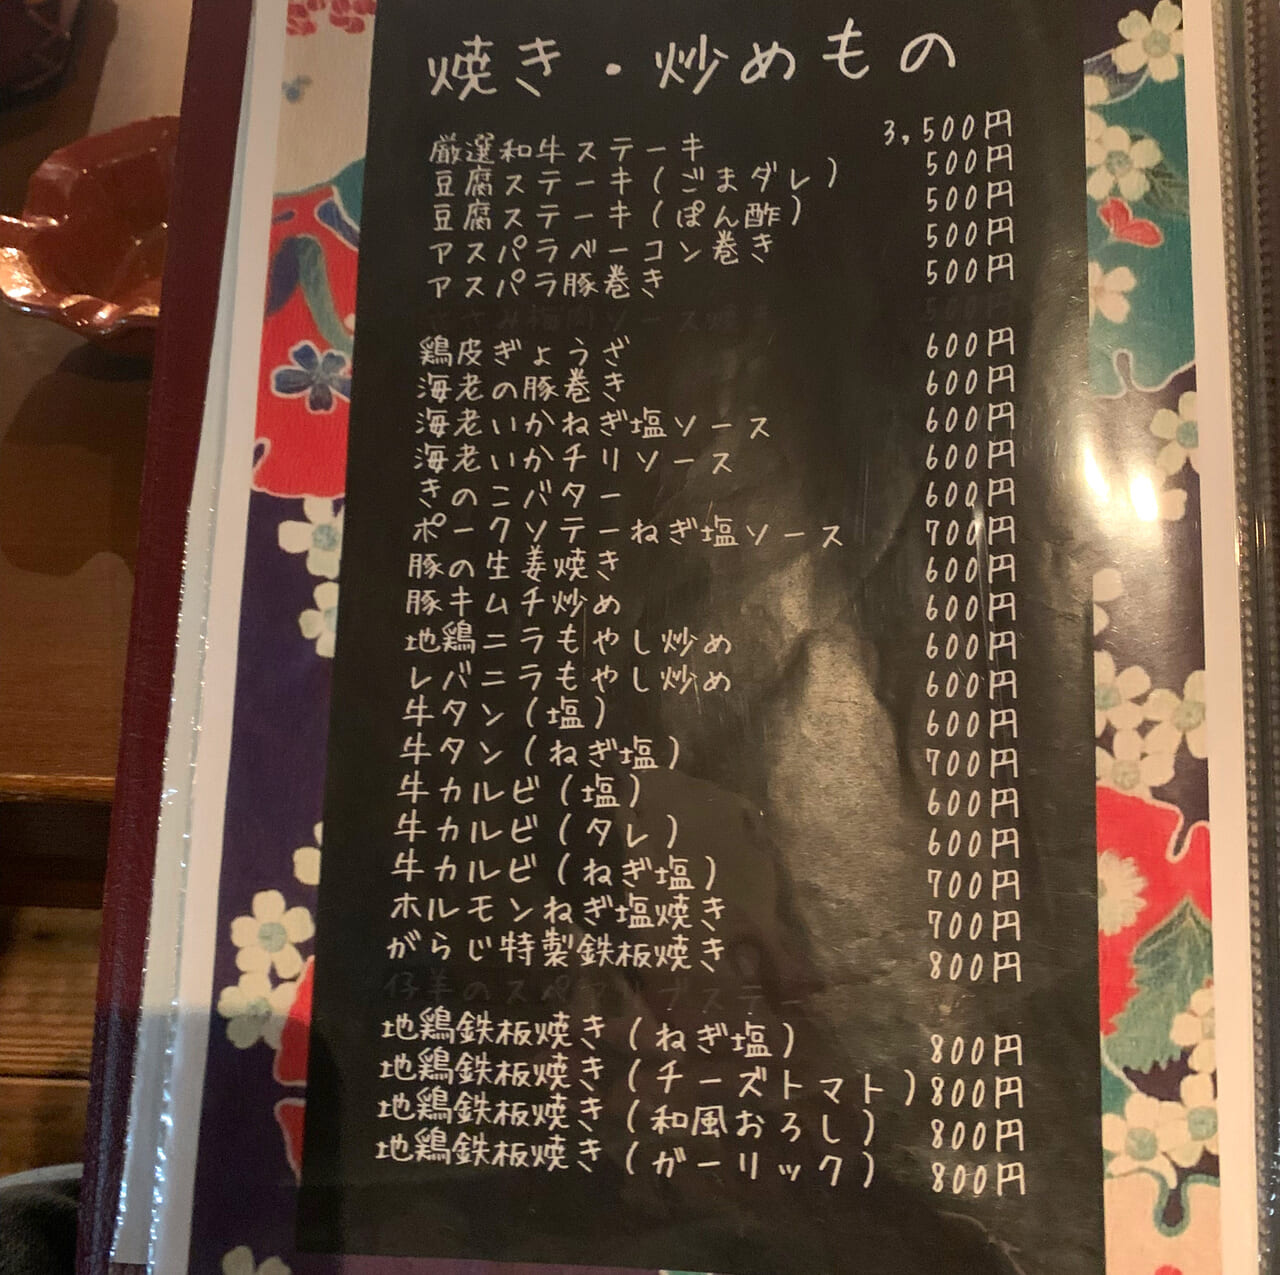 焼き・炒めもの
厳選和牛ステーキ 3,500円
豆腐ステーキ(ごまダレ) 500円
豆腐ステーキ(ぽん酢) 500円
アスパラベーコン巻き 500円
アスパラ豚巻き 500円
ささみ梅肉ソース焼き 500円
鶏皮ぎょうざ 600円
海老の豚巻き 600円
海老いかねぎ塩ソース 600円
海老いかチリソース 600円
きのこバター 600円
ポークソテーねぎ塩ソース 700円
豚の生姜焼き 600円
豚キムチ炒め 600円
地鶏ニラもやし炒め 600円
レバニラもやし炒め 600円
牛タン(塩) 600円
牛タン(ねぎ塩) 700円
牛カルビ(塩) 600円
牛カルビ(タレ) 600円
牛カルビ(ねぎ塩) 700円
ホルモンねぎ塩焼き 700円
がらじ特製鉄板焼き 800円
仔羊のスペアリブステー
地鶏鉄板焼き(ねぎ塩) 800円
地鶏鉄板焼き(チーズトマト) 800円
地鶏鉄板焼き(和風おろし) 800円
地鶏鉄板焼き(ガーリック) 800円